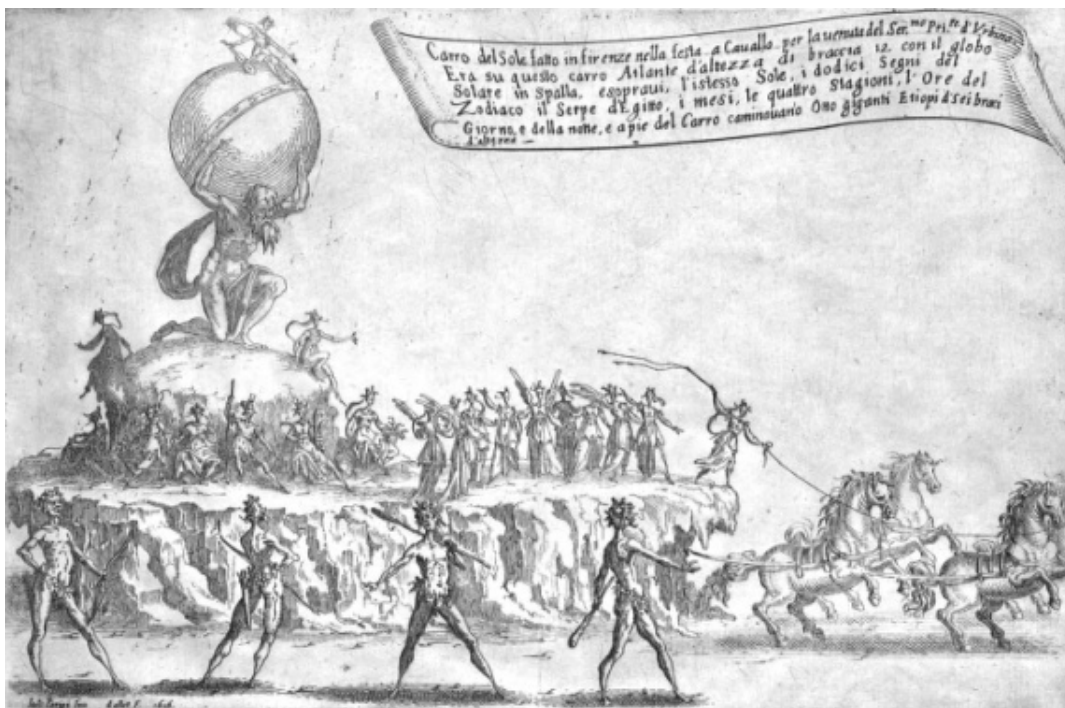 Carro del Sole fatto in firenze nella festa a Cauallo per la uenuta del Ser.mo Pri.pe d'Vrbino
Era su questo carro Atlante d'altezza di braccia 12 con il globo
Solare in Spalla, e sopraui, l'istesso Sole, i dodici Segni del
Zodiaco il Serpe d'Egitto, i mesi, le quattro Stagioni l'Ore del
Giorno, e della notte, e a pie del Carro caminauano Otto giganti Etiopi di Sei bracci
d'altezza